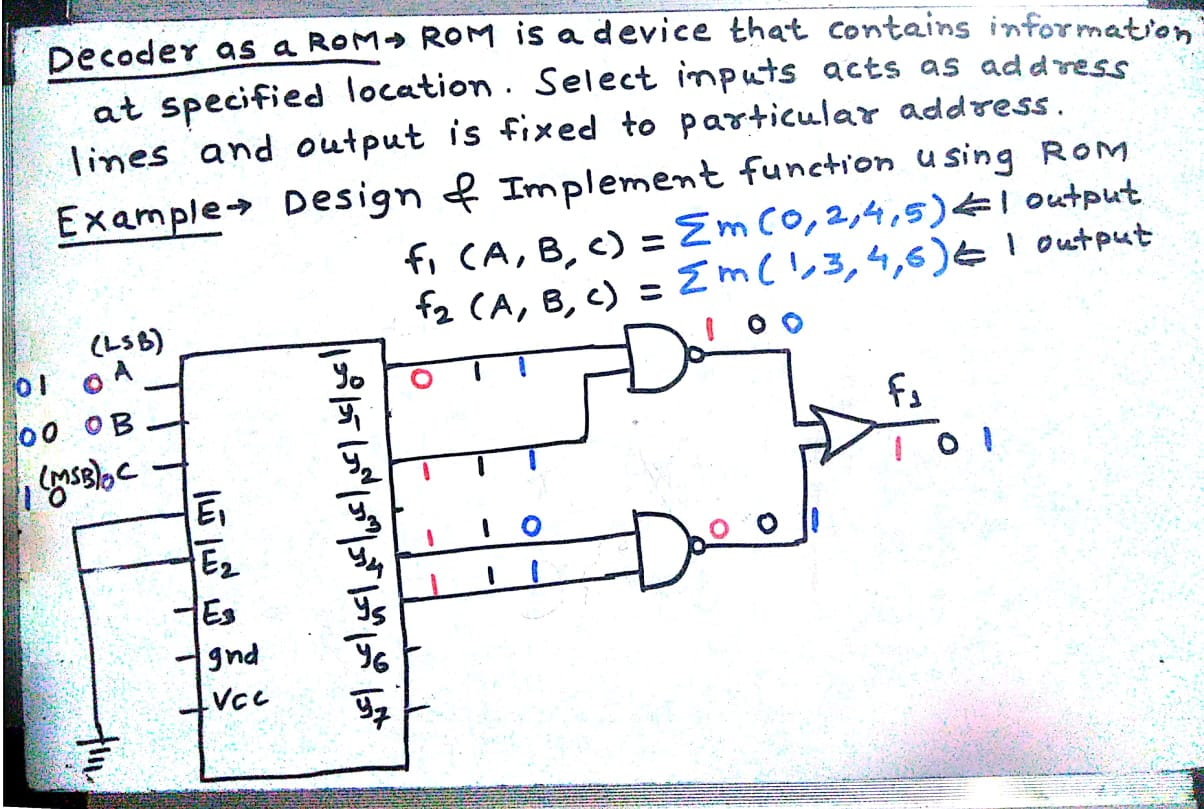 Decoder as a ROM → ROM is a device that contains information
at specified location. Select inputs acts as address
lines and output is fixed to particular address.
Example → Design & Implement function using ROM
f₁ (A, B, C) = Σm (0, 2, 4, 5) ⇐ 1 output
f₂ (A, B, C) = Σm (1, 3, 4, 6) ⇐ 1 output
(LSB)
01 0 A
00 0 B
1 0 (MSB) 0 C
E̅₁
E̅₂
E₃
gnd
Vcc
y̅₀ 0 1 1
y̅₁
y̅₂ 1 1 1
y̅₃
y̅₄ 1 1 0
y̅₅ 1 1 1
y̅₆
y̅₇
1 0 0
0 0 1
f₁
1 0 1